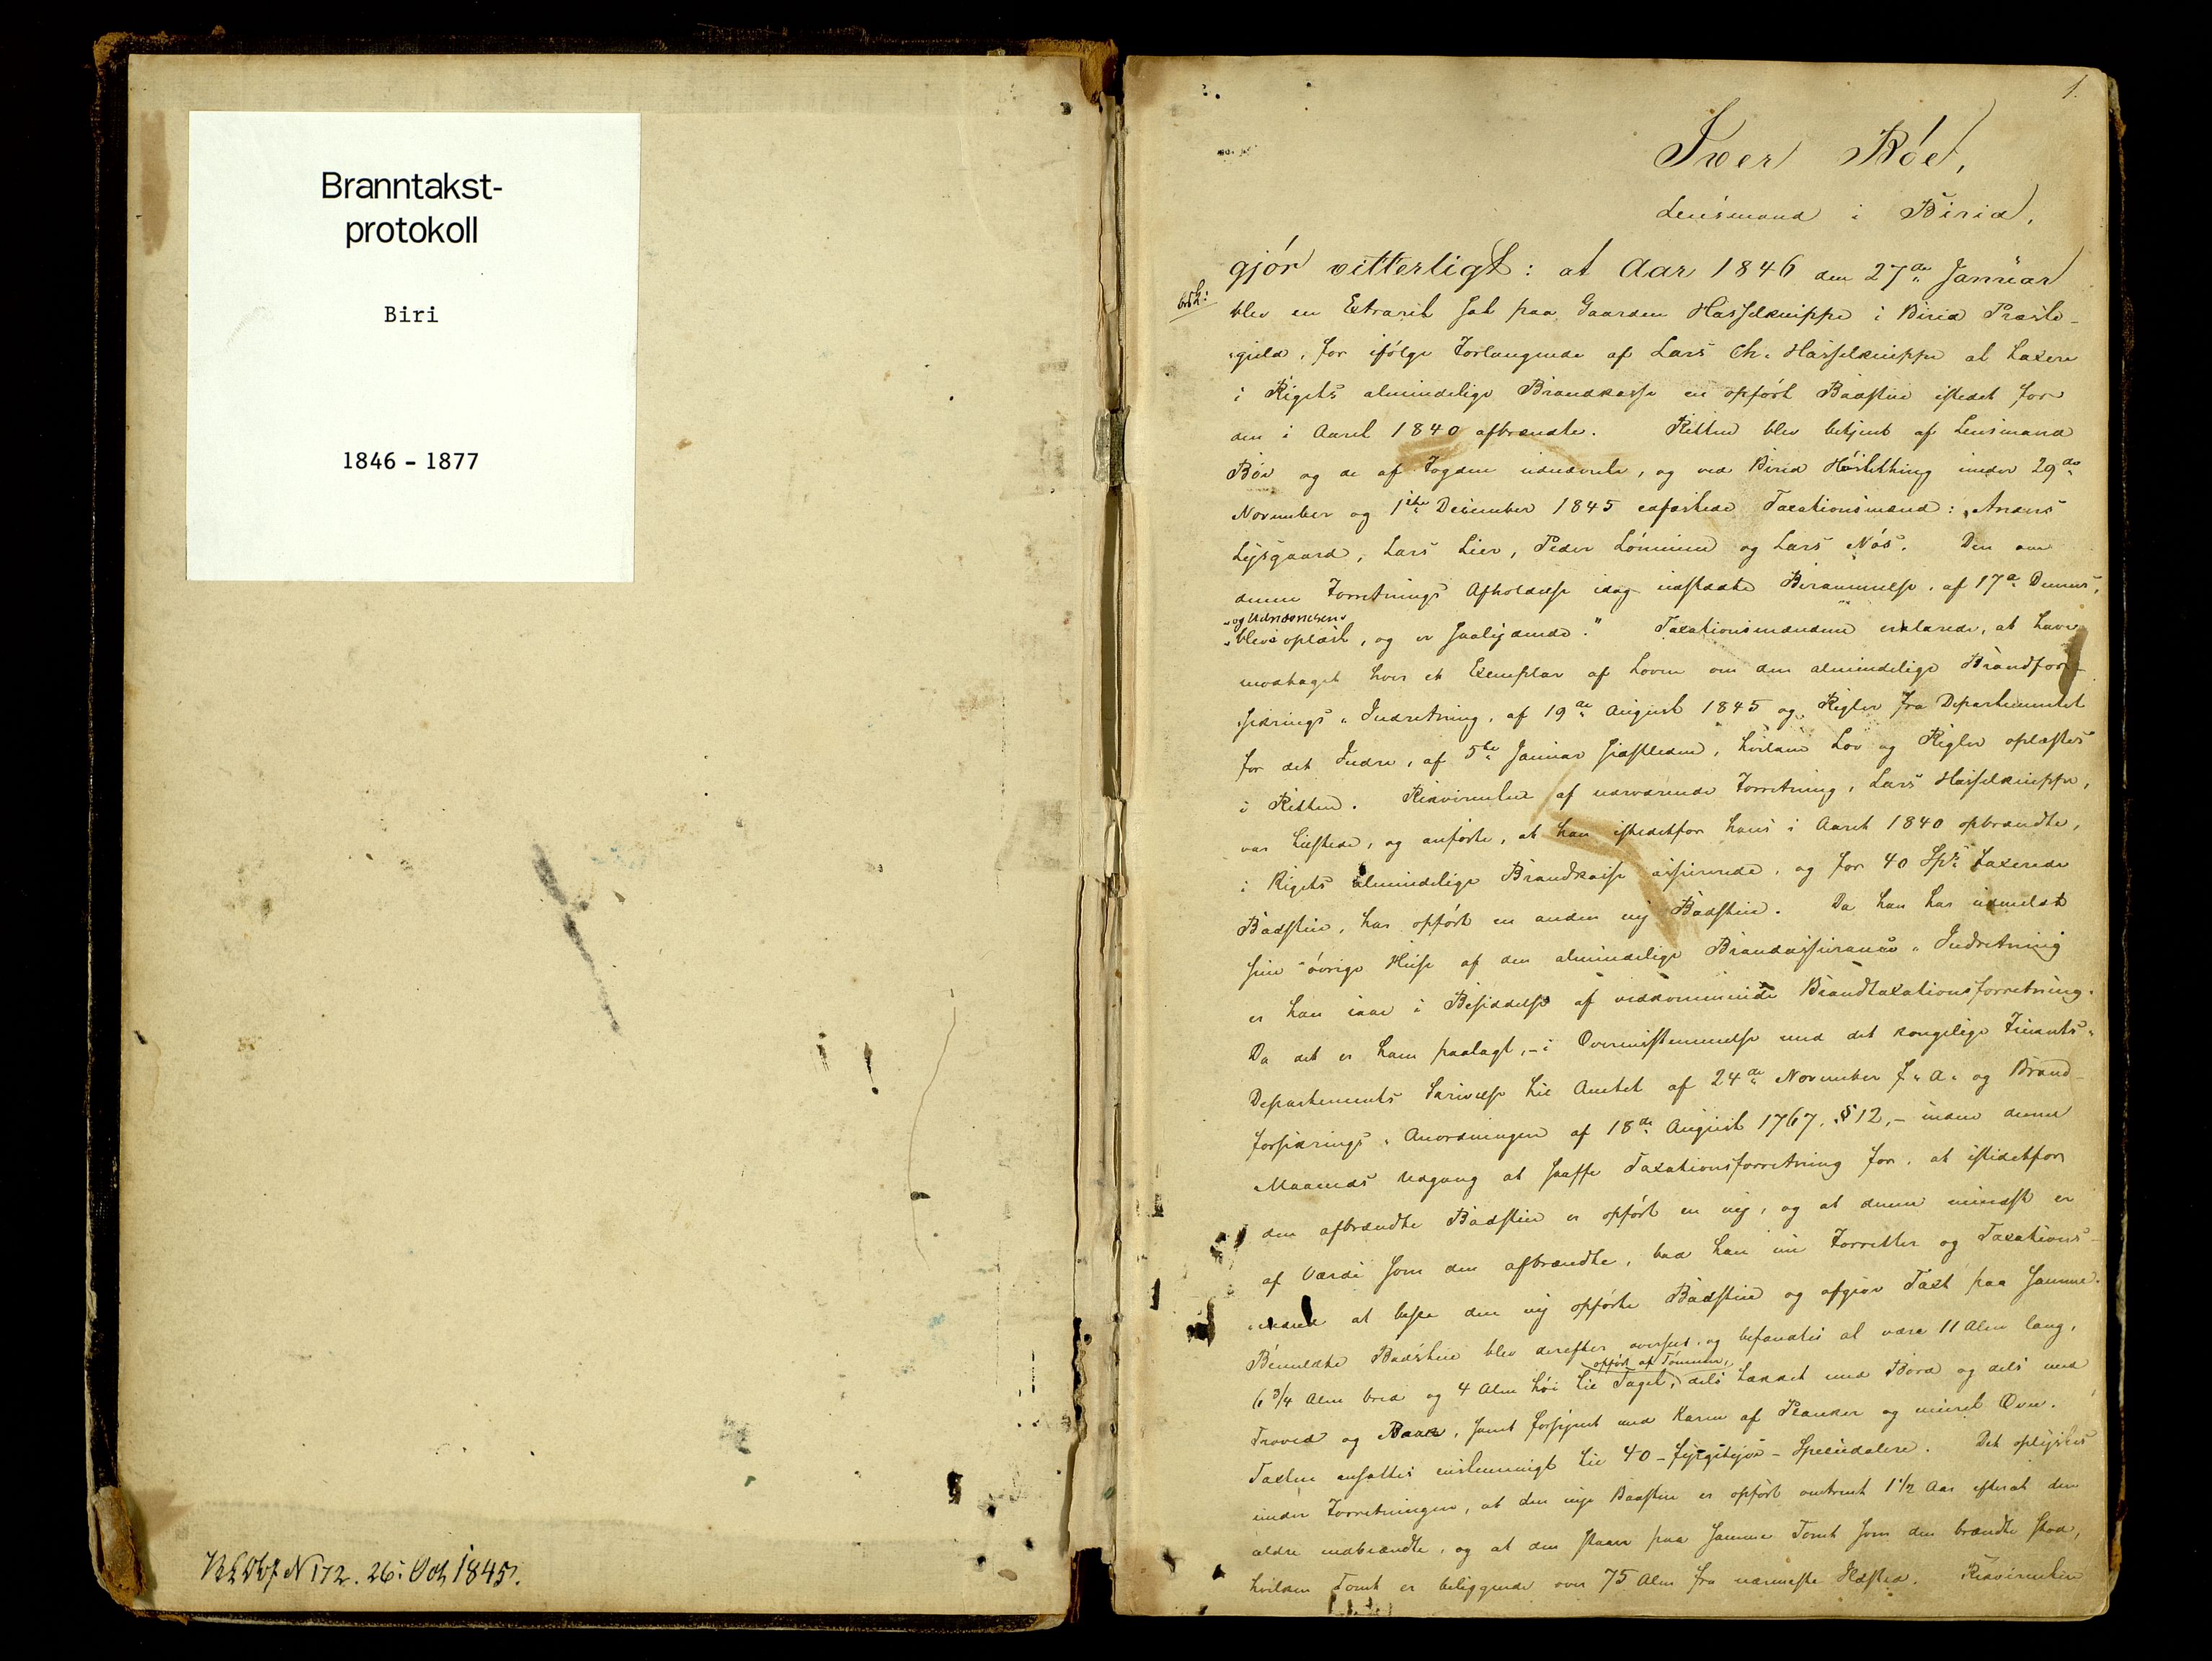 Branntakst-
protokoll
Biri
1846 - 1877
N 172. 26: Oct 1845.
1.
Iver Röe,
Lensmand i Birid,
gjör vitterligt: at Aar 1846 den 27de Januar
blev en Extraret sat paa Gaarden Hasselknippe i Birid Præste-
gield, for ifölge Forlangende af Lars Chr. Hasselknippe at taxere
i Rigets almindelige Brandkasse en opfört Badstue istedet for
den i Aaret 1840 afbrændte. Retten blev betjent af Lensmand
Röe og de af Fogden udnævnte, og ved Birid Hösthing under 29de
November og 1ste December 1845 edfæstede Taxationsmænd: Anders
Lysgaard, Lars Lier, Peder Lönnum og Lars Nös. Den om
denne Forretnings Afholdelse idag udstædte Berammelse, af 17de Dennes,
og Udnævnelsen
blev oplæst, og er saalydende: " Taxationsmændene erklærede, at have
modtaget hver et Exemplar af Loven om den almindelige Brandfor-
sikrings-Indretning, af 19de August 1845 og Regler fra Departementet
for det Indre, af 5te Januar sidstleden, hvilken Lov og Regler oplæstes
i Retten. Rekvirenten af nærværende Forretning, Lars Hasselknippe,
var tilstede, og anförte, at han istedetfor hans i Aaret 1840 opbrændte,
i Rigets almindelige Brandkasse assurerede, og for 40 Spd. taxerede
Badstue, har opfört en anden ny Badstue. Da han har udmeldt
sine övrige Huse af den almindelige Brandassurance-Indretning
er han ikke i Besiddelse af vedkommende Brandtaxationsforretning.
Da det er ham paalagt, - i Overensstemmelse med det kongelige Finants-
Departements Skrivelse til Amtet af 24de November f. A. og Brand-
forsikrings-Anordningen af 18de August 1767, § 12, - inden denne
Maaneds Udgang at skaffe Taxationsforretning for, at istedetfor
den afbrændte Badstue er opfört en ny, og at denne mindst er
af Værdi som den afbrændte, bad han nu Forretter og Taxations-
mænd at bese den ny opförte Badstue og afgive Taxt paa samme.
Bemeldte Badstue blev derefter overseet, og befandtes at være 11 Alen lang,
opfört af Tömmer,
6 3/4 Alen bred og 4 Alen höi til Taget, dels tækket med Bord og dels med
Troved og Baar, samt forsynet med Karm af Planker og muret Ovn.
Taxten ansattes enstemmigt til 40 - fyrgetyve - Speciedalere. Det oplystes
under Forretningen, at den nye Badstue er opfört omtrent 1 1/2 Aar efterat den
ældre nedbrændte, og at den staaer paa samme Tomt som den brændte stod,
hvilken Tomt er beliggende over 75 Alen fra nærmeste Ildsted. Rekvirenten